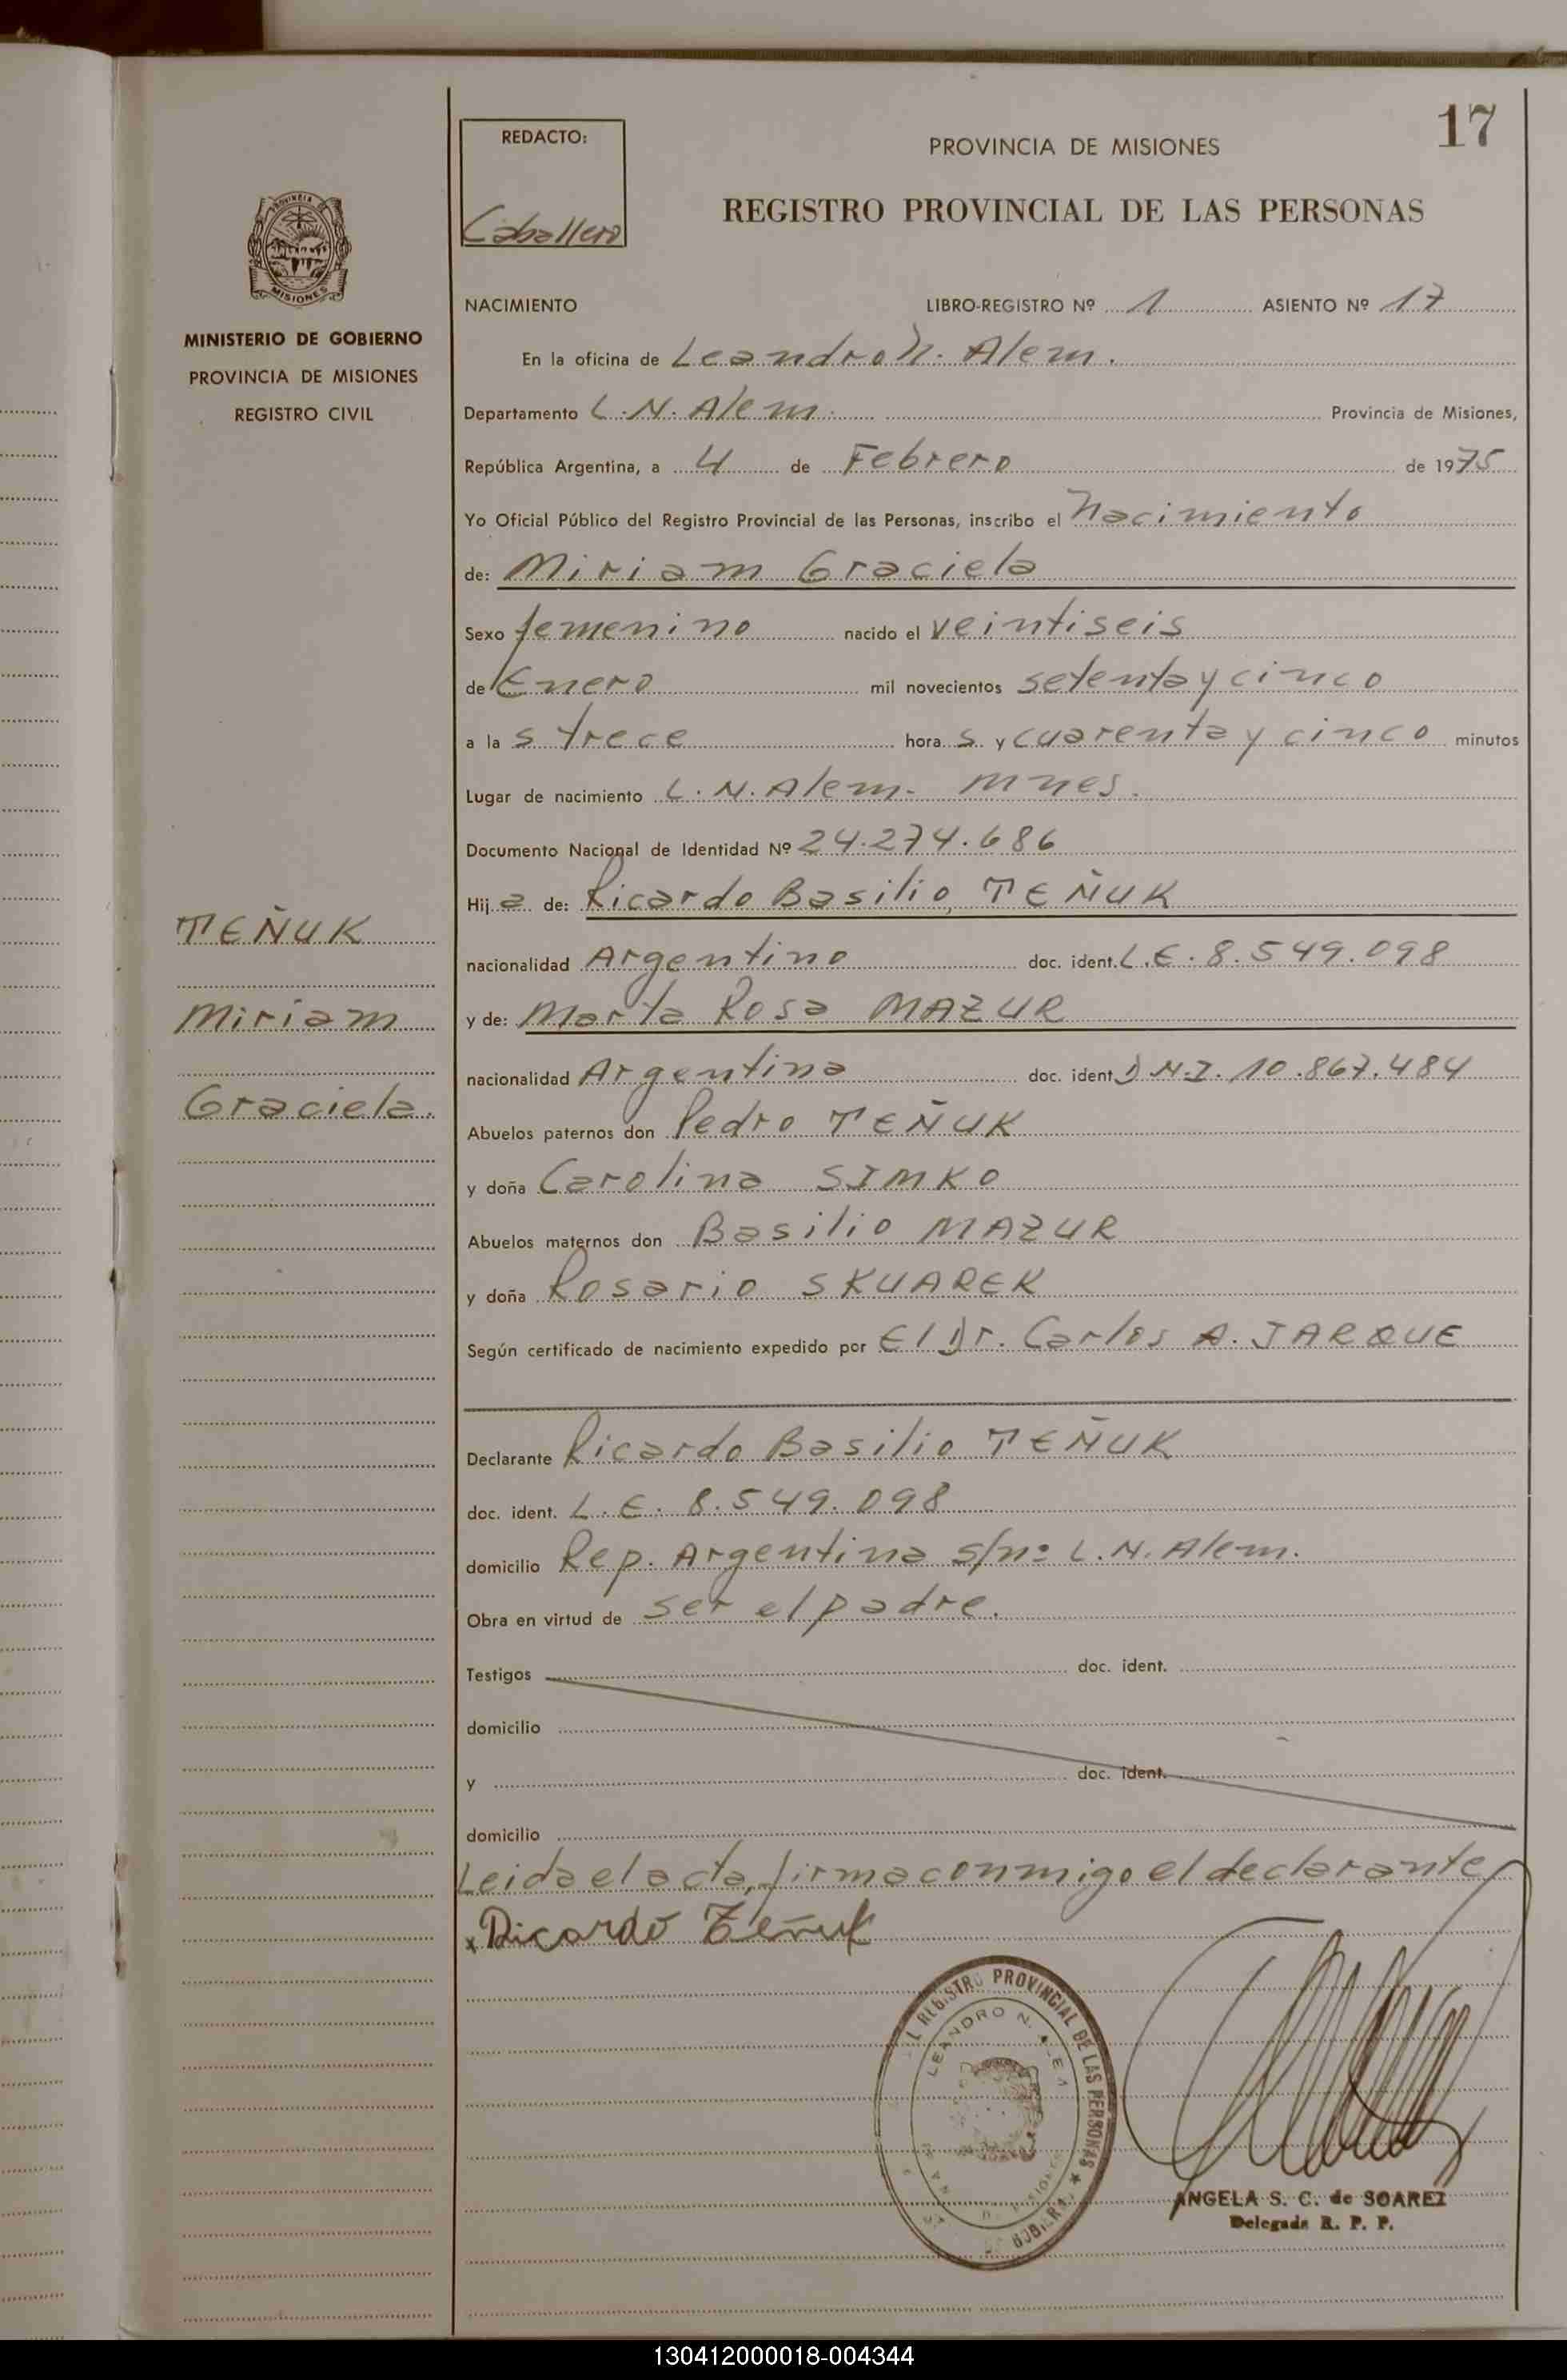 17
REDACTO:
Caballero
PROVINCIA DE MISIONES
REGISTRO PROVINCIAL DE LAS PERSONAS
MISIONES
MINISTERIO DE GOBIERNO
PROVINCIA DE MISIONES
REGISTRO CIVIL
TEÑUK
Miriam
Graciela.
NACIMIENTO LIBRO-REGISTRO Nº 1 ASIENTO Nº 17
En la oficina de Leandro N. Alem.
Departamento L.N. Alem. Provincia de Misiones,
República Argentina, a 4 de Febrero de 1975
Yo Oficial Público del Registro Provincial de las Personas, inscribo el Nacimiento
de: Miriam Graciela
Sexo femenino nacido el veintiseis
de Enero mil novecientos setenta y cinco
a la s trece hora s y cuarenta y cinco minutos
Lugar de nacimiento L.N. Alem. Mnes.
Documento Nacional de Identidad Nº 24.274.686
Hij a de: Ricardo Basilio TEÑUK
nacionalidad Argentino doc. ident. L.E. 8.549.098
y de: Marta Rosa MAZUR
nacionalidad Argentina doc. ident. D.N.I. 10.867.484
Abuelos paternos don Pedro TEÑUK
y doña Carolina SIMKO
Abuelos maternos don Basilio MAZUR
y doña Rosario SKUAREK
Según certificado de nacimiento expedido por El Dr. Carlos A. JARQUE
Declarante Ricardo Basilio TEÑUK
doc. ident. L.E. 8.549.098
domicilio Rep. Argentina s/nº L.N. Alem.
Obra en virtud de ser el padre.
Testigos doc. ident.
domicilio
y doc. ident.
domicilio
Leida el acta, firma conmigo el declarante
x Ricardo Teñuk
REGISTRO PROVINCIAL DE LAS PERSONAS
LEANDRO N. ALEM
ANGELA S. C. de SOAREZ
Delegada R. P. P.
130412000018-004344